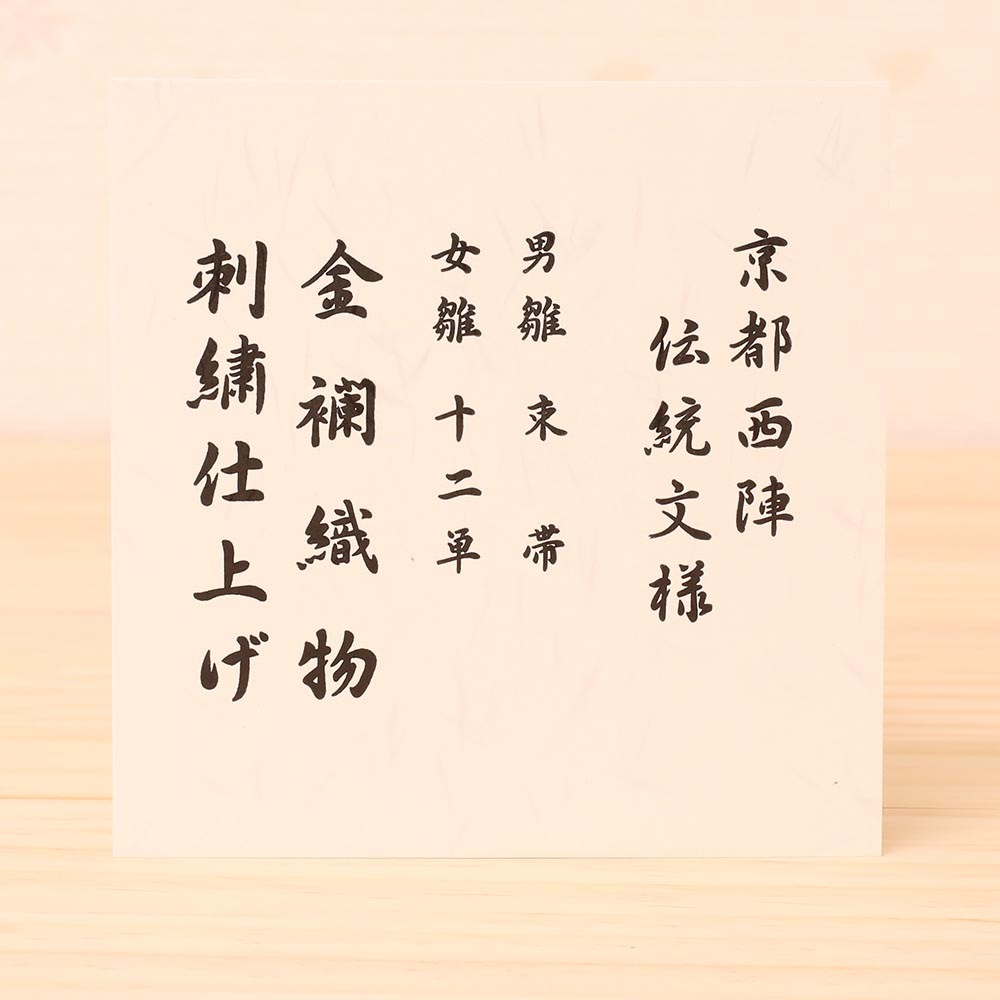 京都西陣
伝統文様
男雛 束 帯
女雛 十二単
金襴織物
刺繍仕上げ